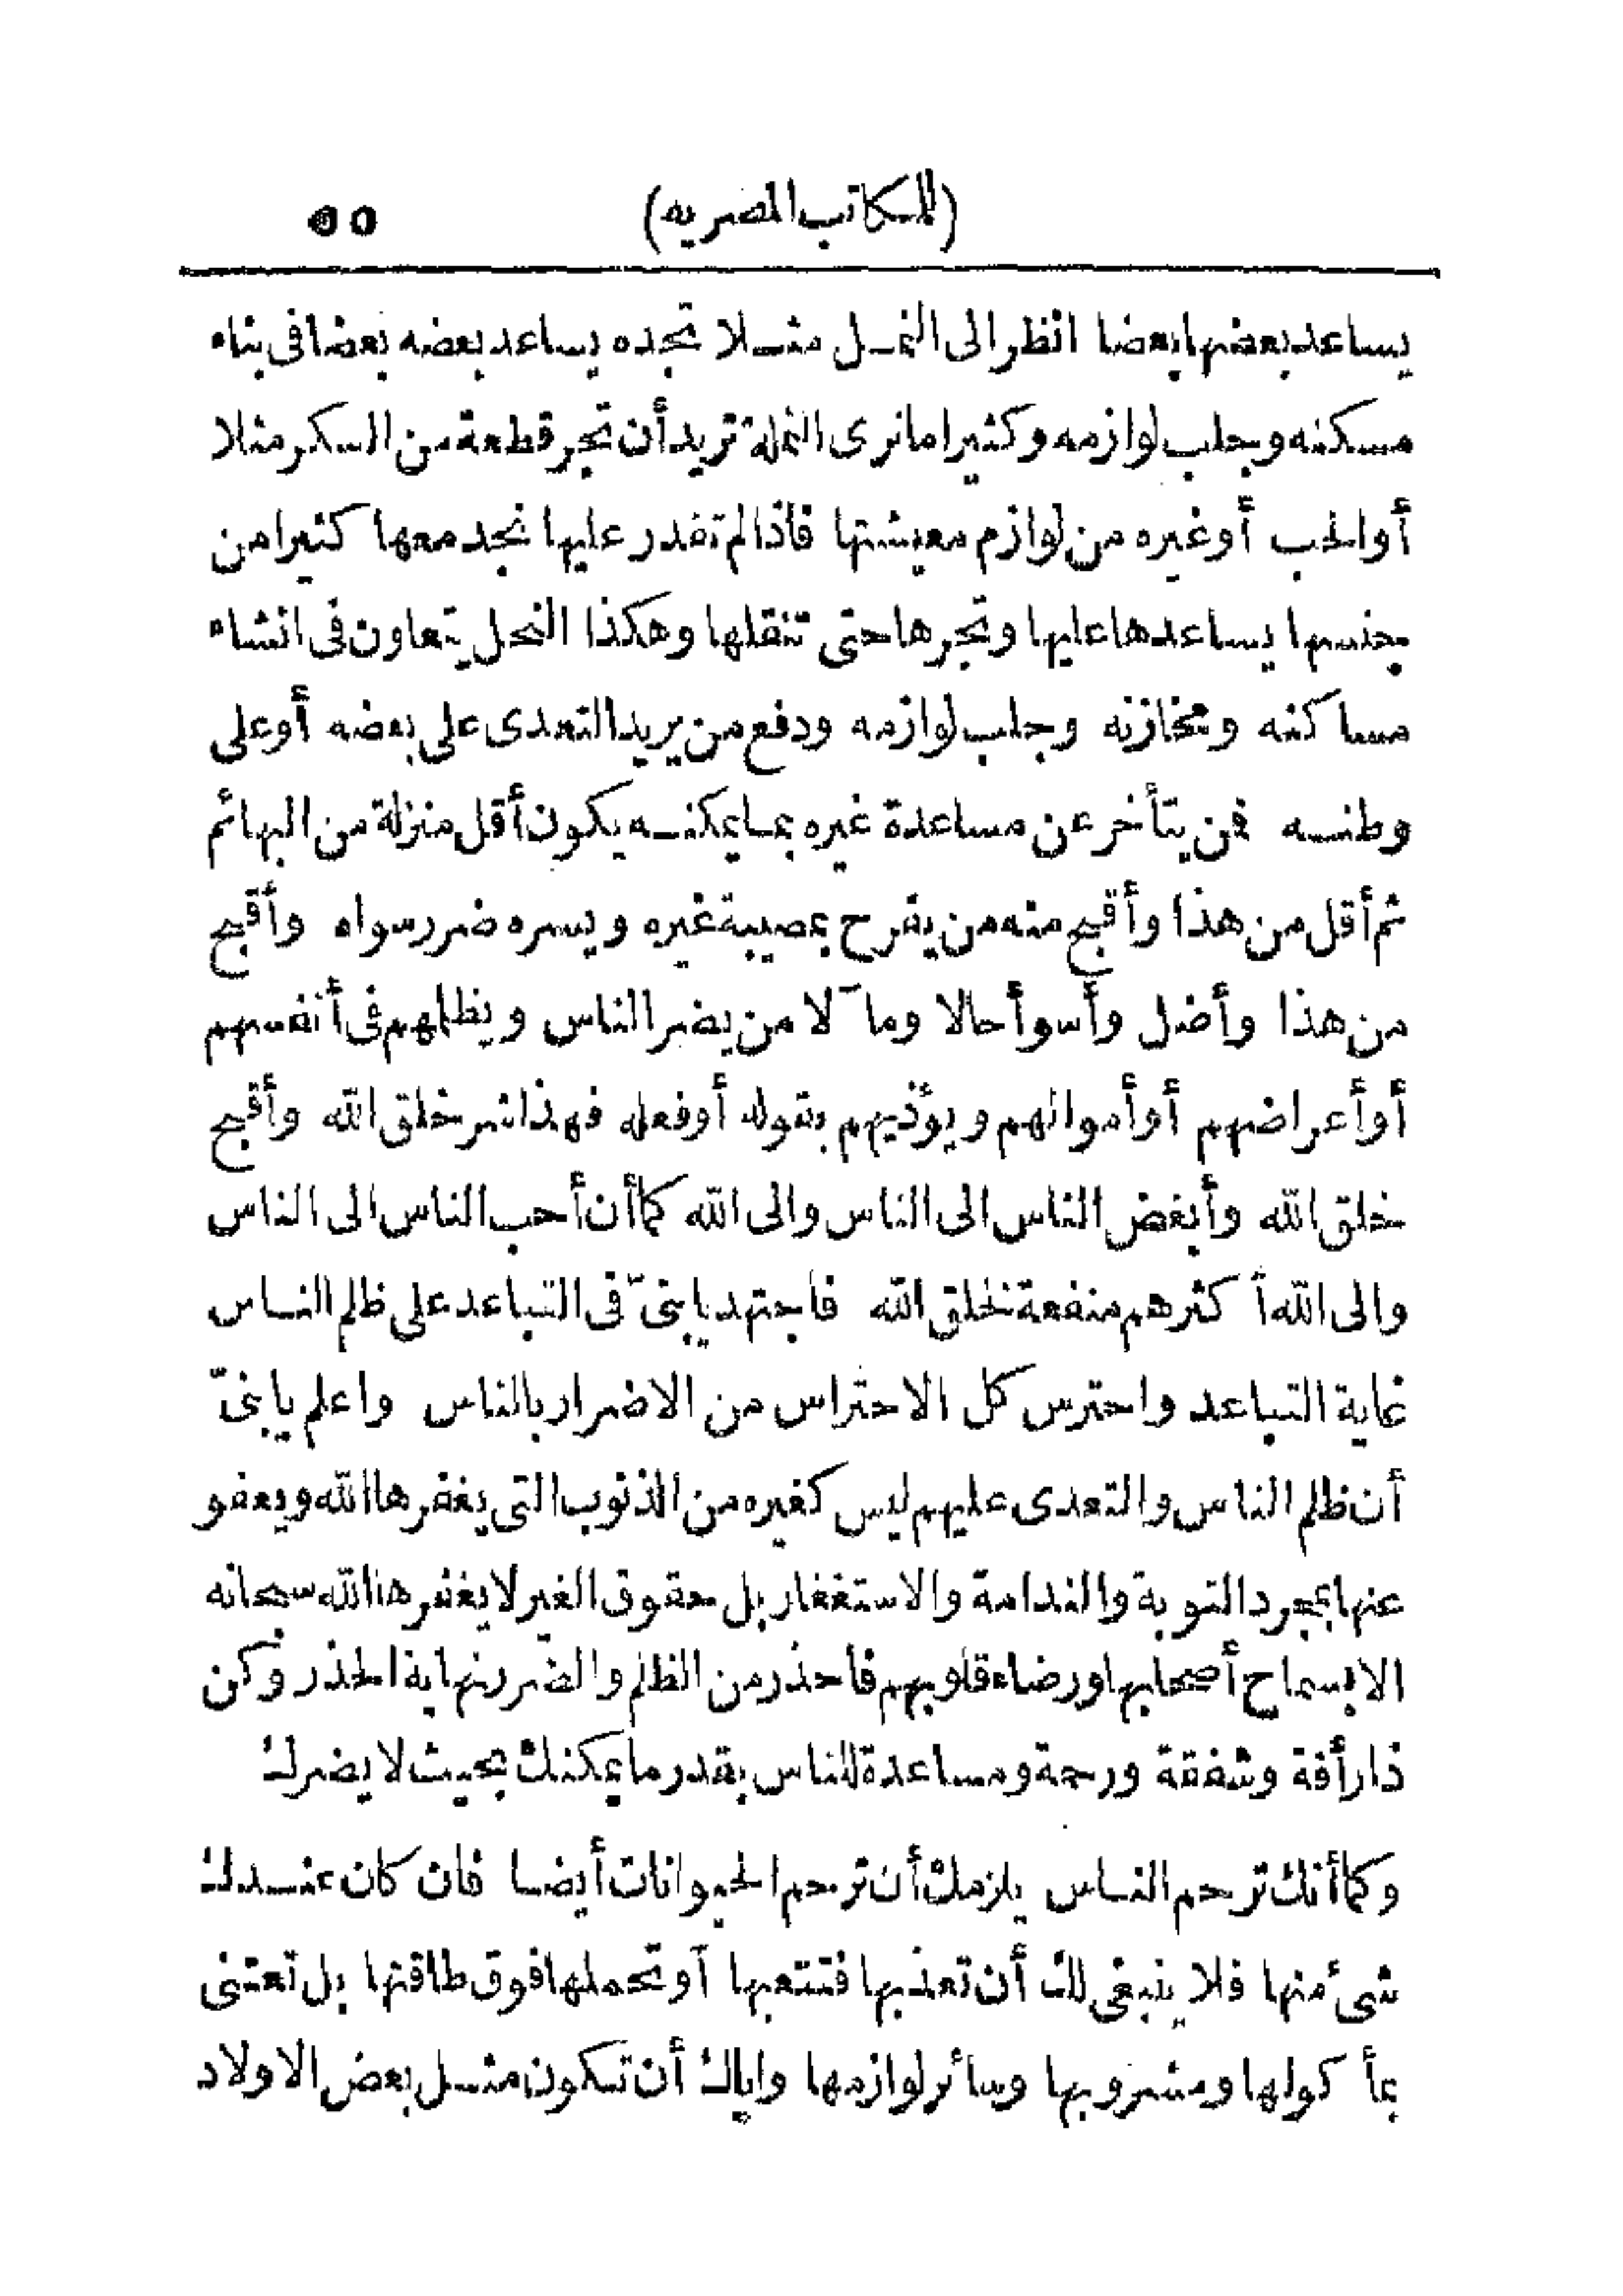 (للمكاتب المصريه) ٥٥
يساعد بعضها بعضا انظر الى النمل مثلا تجده يساعد بعضه بعضا فى بناء
مسكنه وجلب لوازمه وكثيرا ما نرى النملة تريد أن تجر قطعة من السكر مثلا
أو الحب أو غيره من لوازم معيشتها فاذا لم تقدر عليها نجد معها كثيرا من
جنسها يساعدها عليها وتجرها حتى تنقلها وهكذا النحل يتعاون فى انشاء
مساكنه ومخازنه وجلب لوازمه ودفع من يريد التعدى على بعضه أو على
وطنه فمن يتأخر عن مساعدة غيره بما يمكنه يكون أقل منزلة من البهائم
ثم أقل من هذا وأقبح منه من يفرح بمصيبة غيره ويسره ضرر سواه وأقبح
من هذا وأضل وأسوأ حالا ومآلا من يضر الناس ويظلمهم فى أنفسهم
أو أعراضهم أو أموالهم ويؤذيهم بقوله أو فعله فهذا شر خلق الله وأقبح
خلق الله وأبغض الناس الى الناس والى الله كما أن أحب الناس الى الناس
والى الله أكثرهم منفعة لخلق الله فاجتهد يا بنىّ فى التباعد على ظلم الناس
غاية التباعد واحترس كل الاحتراس من الاضرار بالناس واعلم يا بنىّ
أن ظلم الناس والتعدى عليهم ليس كغيره من الذنوب التى يغفرها الله ويعفو
عنها بمجرد التوبة والندامة والاستغفار بل حقوق الغير لا يغفرها الله سبحانه
الا بسماح أصحابها ورضاء قلوبهم فاحذر من الظلم والضرر نهاية الحذر وكن
ذا رأفة وشفقة ورحمة ومساعدة للناس بقدر ما يمكنك بحيث لا يضرك
وكما أنك ترحم الناس يلزمك أن ترحم الحيوانات أيضا فان كان عندك
شئ منها فلا ينبغى لك أن تعذبها فتتعبها أو تحملها فوق طاقتها بل تعتنى
بمأكولها ومشروبها وسائر لوازمها واياك أن تكون مثل بعض الاولاد